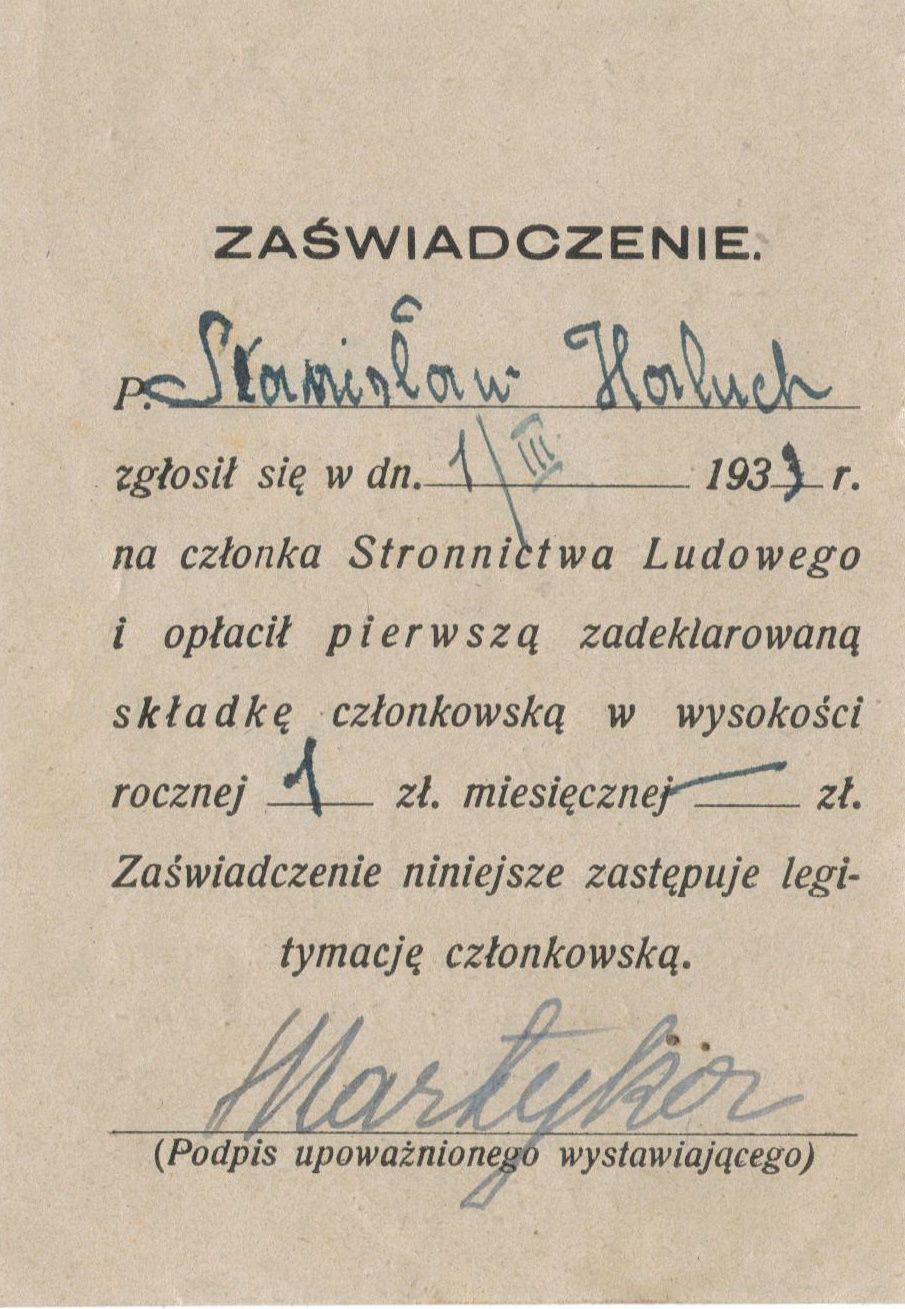 ZAŚWIADCZENIE.
P. Stanisław Haluch
zgłosił się w dn. 1/III 1933 r.
na członka Stronnictwa Ludowego
i opłacił pierwszą zadeklarowaną
składkę członkowską w wysokości
rocznej 1 zł. miesięcznej — zł.
Zaświadczenie niniejsze zastępuje legi-
tymację członkowską.
Martyka
(Podpis upoważnionego wystawiającego)